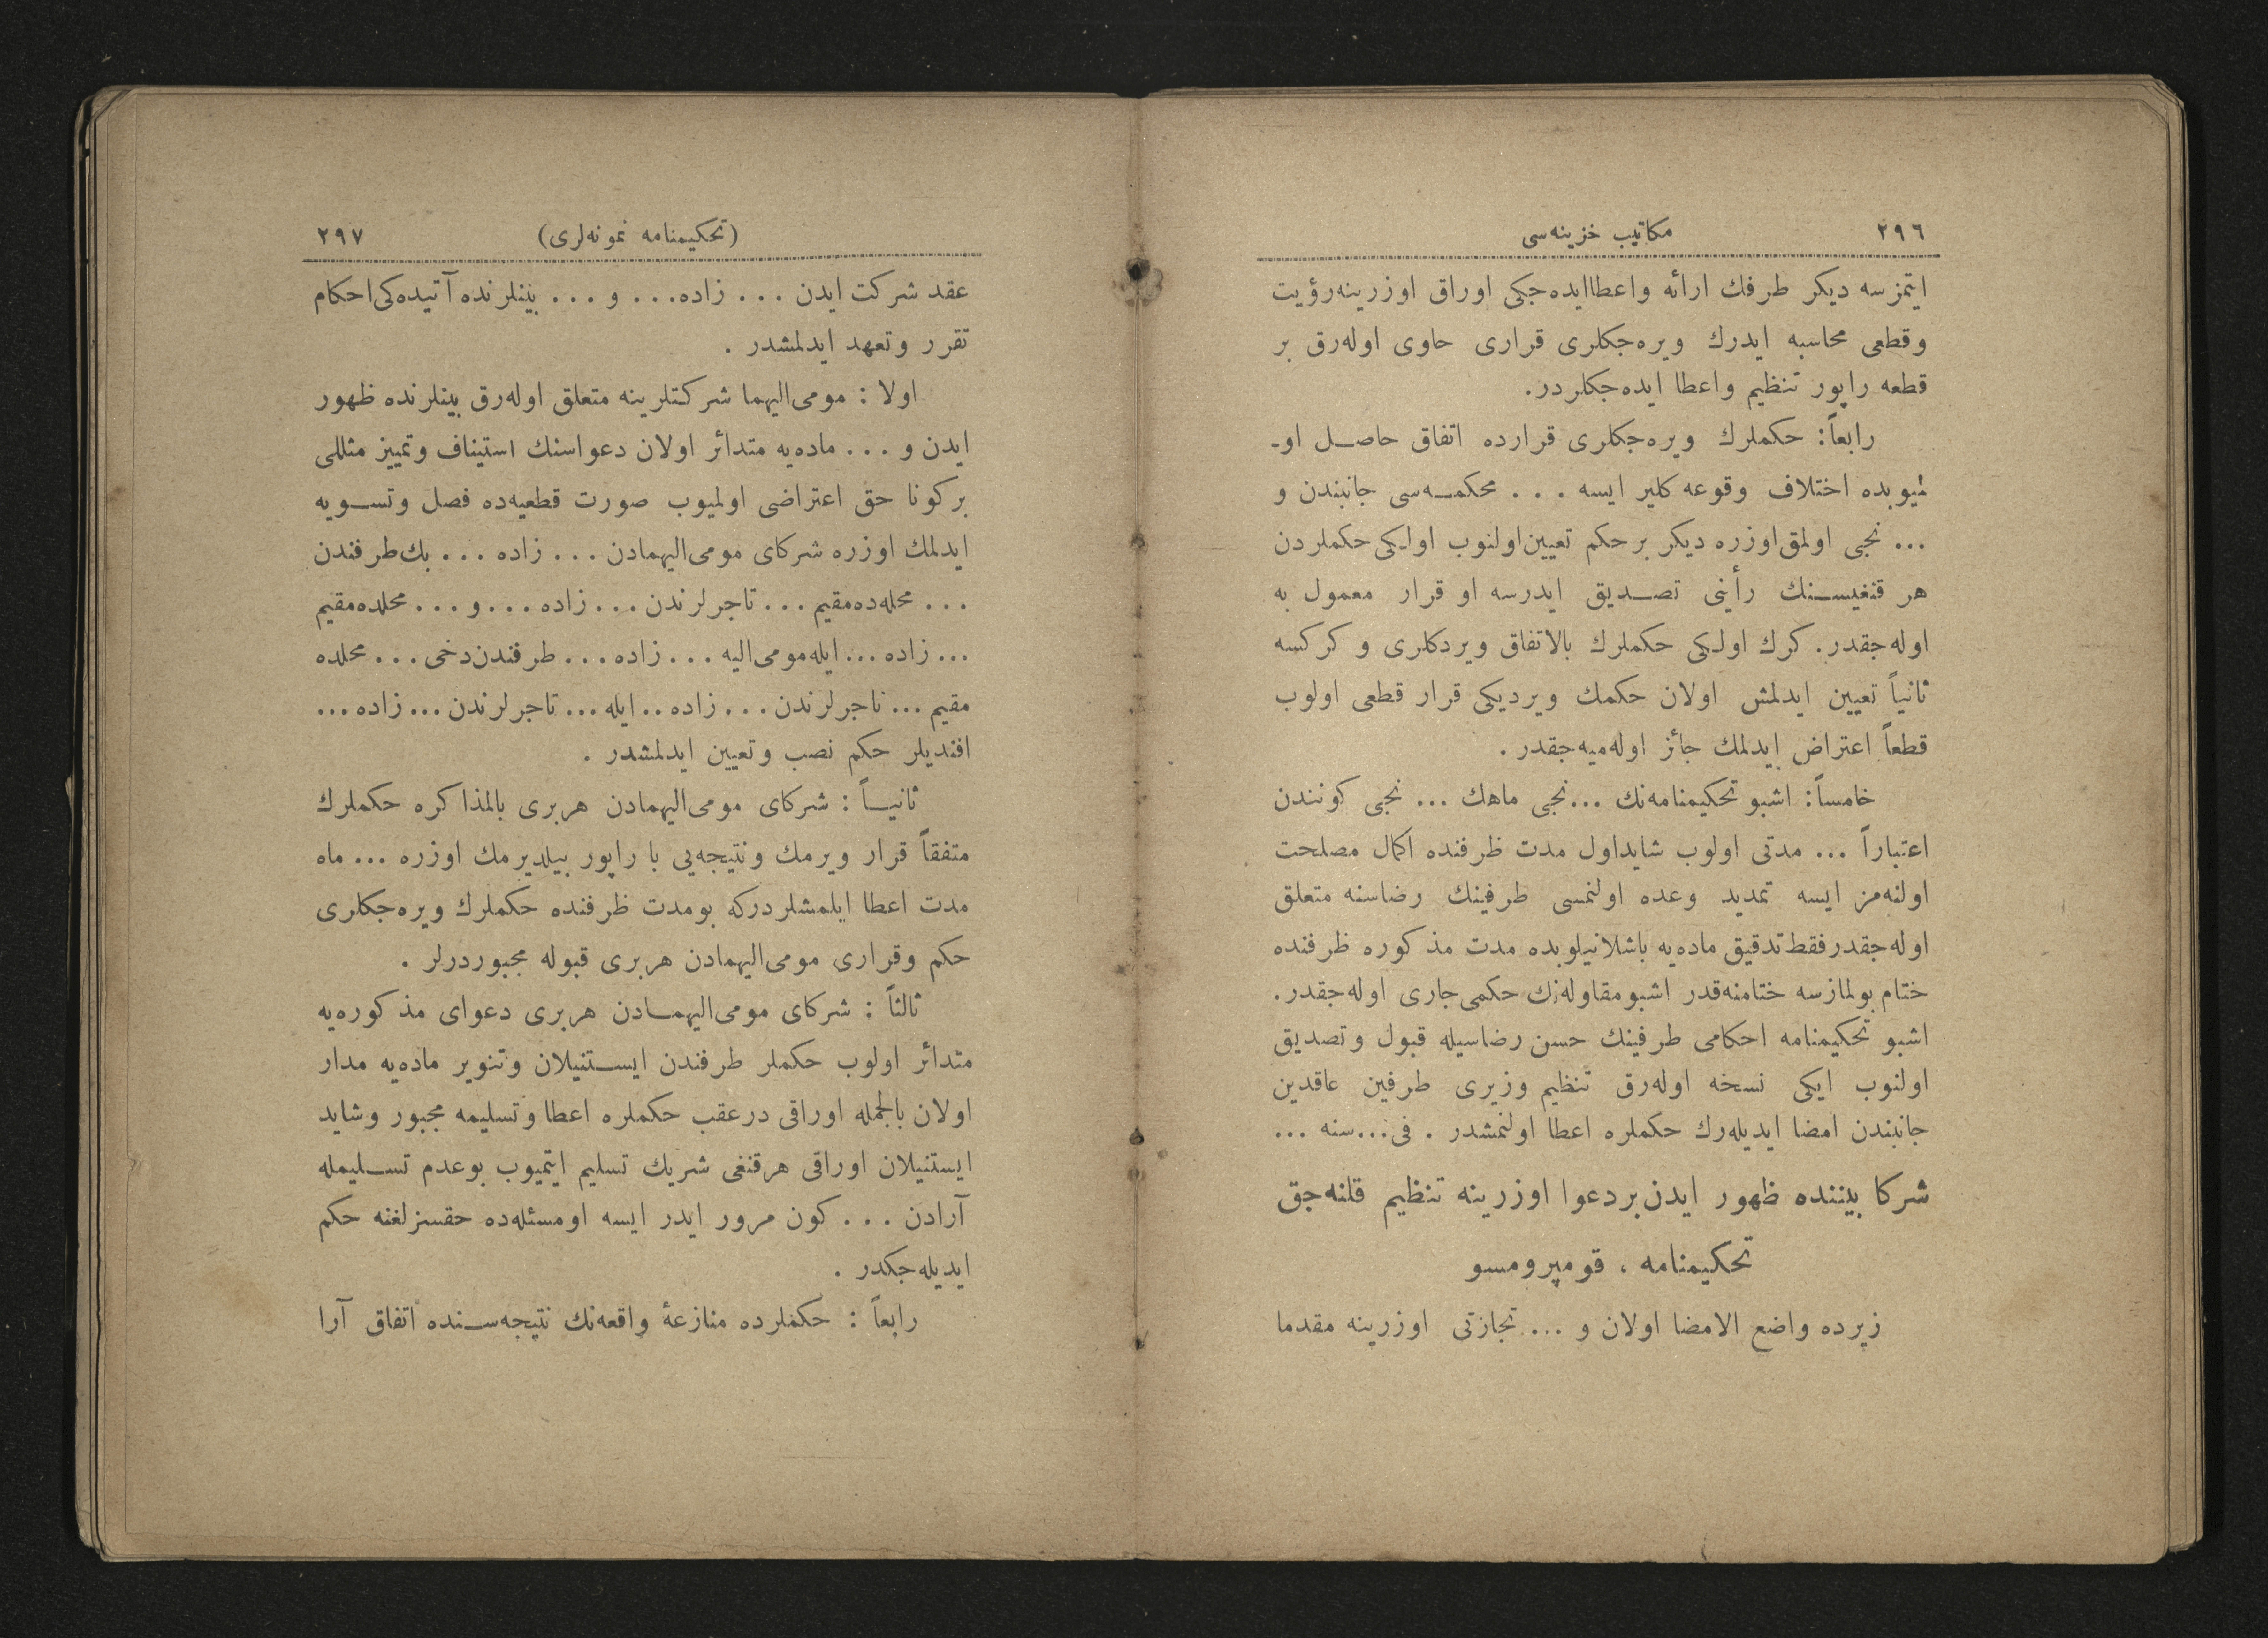 ٢٩٦ مكاتيب خزينه‌سى
ايتمزسه ديكر طرفك ارائه واعطاايده‌جكى اوراق اوزرينه‌رؤيت
وقطعى محاسبه ايدرك ويره‌جكلرى قرارى حاوى اوله‌رق بر
قطعه راپور تنظيم واعطا ايده‌جكلردر.
رابعاً: حكملرك ويره‌جكلرى قرارده اتفاق حاصل او-
لميوبده اختلاف وقوعه كلير ايسه ... محكمه‌سى جانبندن و
... نجى اولمق اوزره ديكر برحكم تعيين‌اولنوب اولكى حكملردن
هر قنغيسنك رأينى تصديق ايدرسه او قرار معمول به
اوله‌جقدر. كرك اولكى حكملرك بالاتفاق ويردكلرى و كركسه
ثانياً تعيين ايدلمش اولان حكمك ويرديكى قرار قطعى اولوب
قطعاً اعتراض ايدلمك جائز اوله‌ميه‌جقدر .
خامساً: اشبو تحكيمنامه‌نك ...نجى ماهك ... نجى كونندن
اعتباراً ... مدتى اولوب شايداول مدت ظرفنده اكمال مصلحت
اولنه‌مز ايسه تمديد وعده اولنمسى طرفينك رضاسنه متعلق
اوله‌جقدرفقط تدقيق ماده‌يه باشلانيلوبده مدت مذكوره ظرفنده
ختام بولمازسه ختامنه‌قدر اشبومقاوله‌نك حكمى‌جارى اوله‌جقدر.
اشبو تحكيمنامه احكامى طرفينك حسن رضاسيله قبول وتصديق
اولنوب ايكى نسخه اوله‌رق تنظيم وزيرى طرفين عاقدين
جانبندن امضا ايديله‌رك حكملره اعطا اولنمشدر . فى...سنه ...
شركا بيننده ظهور ايدن بردعوا اوزرينه تنظيم قلنه‌جق
تحكيمنامه ، قومپرومسو
زيرده واضع الامضا اولان و ... تجارتى اوزرينه مقدما
(تحكيمنامه نمونه‌لرى) ٢٩٧
عقد شركت ايدن ... زاده... و ... بينلرنده آتيده‌كى‌احكام
تقرر وتعهد ايدلمشدر .
اولا : مومى‌اليهما شركتلرينه متعلق اوله‌رق بينلرنده ظهور
ايدن و ... ماده‌يه متدائر اولان دعواسنك استيناف وتمييز مثللى
بركونا حق اعتراضى اولميوب صورت قطعيه‌ده فصل وتسويه
ايدلمك اوزره شركاى مومى‌اليهمادن ... زاده ... بك‌طرفندن
... محله‌ده‌مقيم ... تاجرلرندن ... زاده ...و ... محلده‌مقيم
... زاده ... ايله‌مومى‌اليه ... زاده ... طرفندن‌دخى ... محلده
مقيم ... تاجرلرندن ... زاده .. ايله ... تاجرلرندن ... زاده ...
افنديلر حكم نصب وتعيين ايدلمشدر .
ثانياً : شركاى مومى‌اليهمادن هربرى بالمذاكره حكملرك
متفقاً قرار ويرمك ونتيجه‌يى با راپور بيلديرمك اوزره ... ماه
مدت اعطا ايلمشلردركه بومدت ظرفنده حكملرك ويره‌جكلرى
حكم وقرارى مومى‌اليهمادن هربرى قبوله مجبوردرلر .
ثالثاً : شركاى مومى‌اليهمادن هربرى دعواى مذكوره‌يه
متدائر اولوب حكملر طرفندن ايستنيلان وتنوير ماده‌يه مدار
اولان بالجمله اوراقى درعقب حكملره اعطا وتسليمه مجبور وشايد
ايستنيلان اوراقى هرقنغى شريك تسليم ايتميوب بوعدم تسليمله
آرادن ... كون مرور ايدر ايسه اومسئله‌ده حقسزلغنه حكم
ايديله‌جكدر .
رابعاً : حكملرده منازعۀ واقعه‌نك نتيجه‌سنده اتفاق آرا